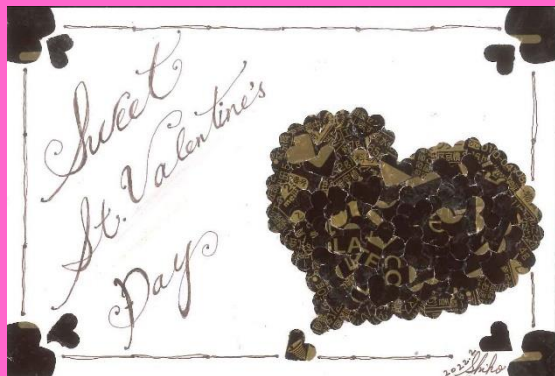 Sweet
St. Valentine's
Day
2022.2
Shiho